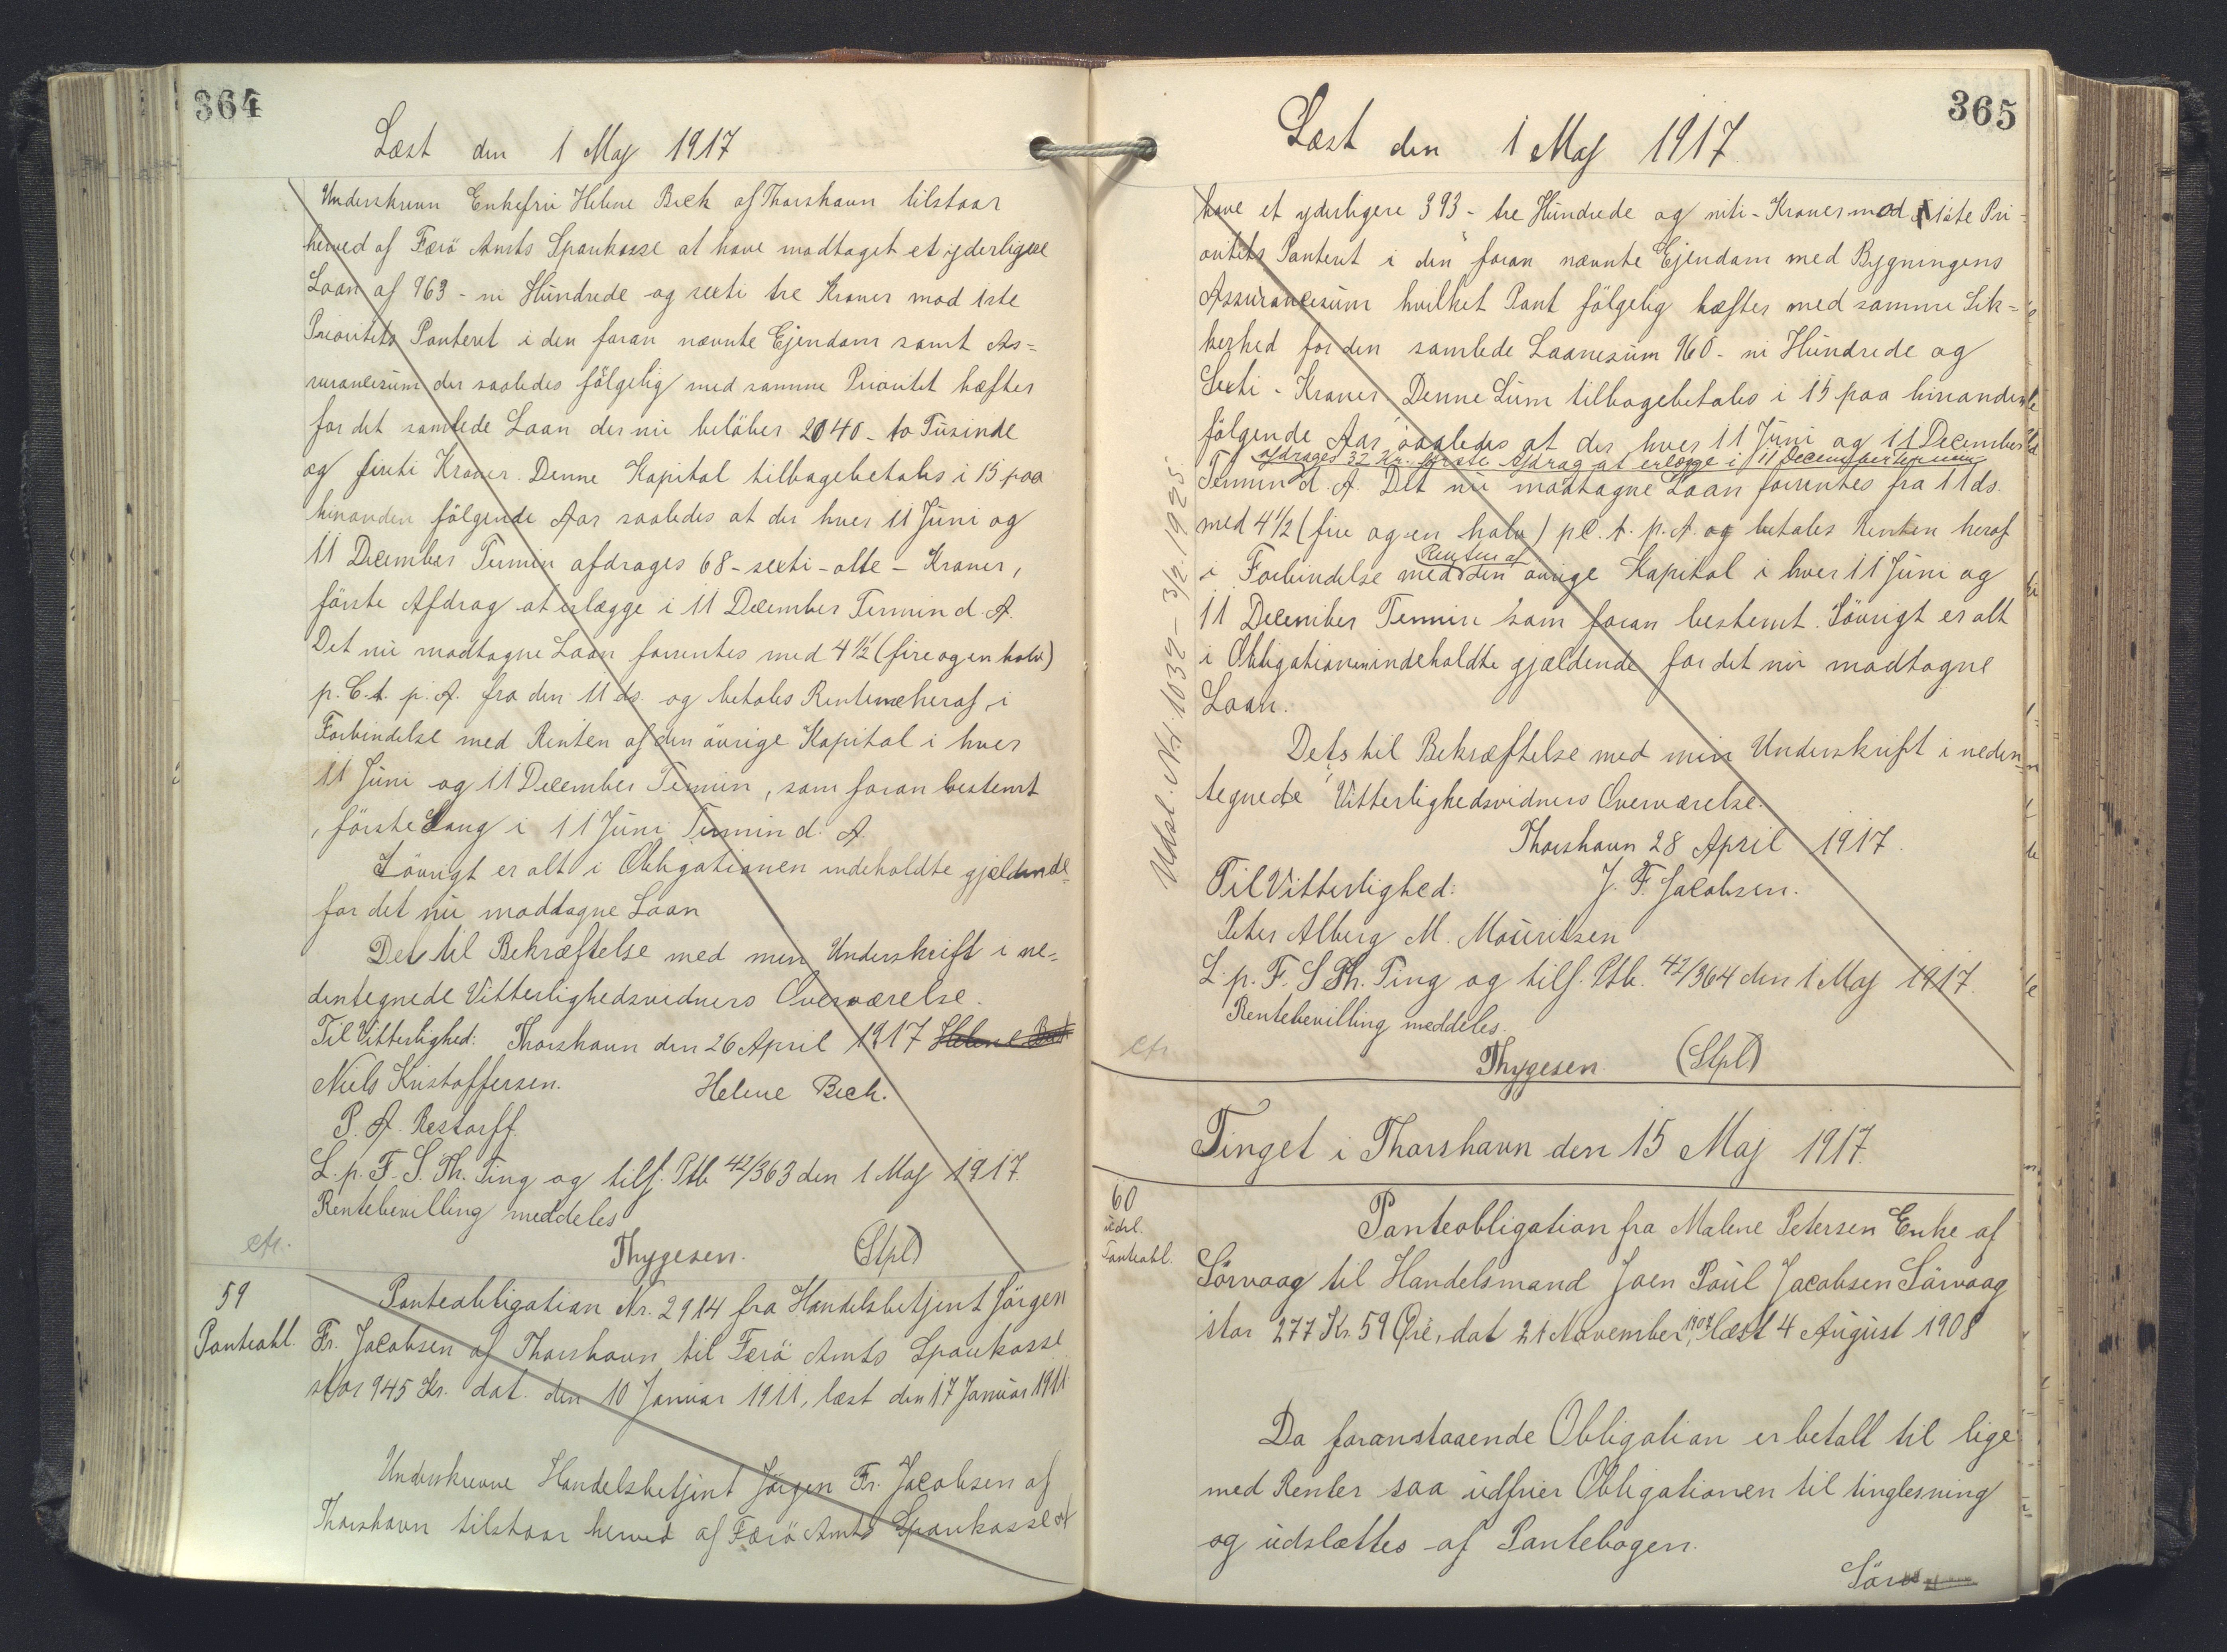 364
Læst den 1 Maj 1917
Underskrevn Enkefru Helene Beck af Thorshavn tilstaar
herved af Færö Amts Sparekasse at have modtaget et yderligere
Laan af 963 - ni Hundrede og sexti tre Kroner mod 1ste
Prioritets Panteret i den foran nævnte Ejendom samt As=
surancesum der saaledes fölgelig med samme Prioritet hæfter
for det samlede Laan der nu belöber 2040 - to Tusinde
og fireti Kroner. Denne Kapital tilbagebetales i 15 paa
hinanden fölgende Aar saaledes at der hver 11 Juni og
11 December Termin afdrages 68 - sexti - otte - Kroner,
förste Afdrag at erlægge i 11 December Termin d. A.
Det nu modtagne Laan forrentes med 4 1/2 (fire og en halv)
p. C. t. p. A. fra den 11 ds. og betales Renterne heraf, i
Forbindelse med Renten af den övrige Kapital i hver
11 Juni og 11 December Termin, som foran bestemt
, förste Gang i 11 Juni Termin d. A.
Iövrigt er alt i Obligationen indeholdte gjeldende
for det nu modtagne Laan
Det til Bekræftelse med min Underskrift i ne=
dentegnede Vitterlighedsvidners Overværelse.
Til Vitterlighed: Thorshavn den 26 April 1917 Helene Beck
Niels Kristoffersen. Helene Beck.
P. A. Restorff.
L. p. F. S. Th. Ting og tilf. Ptb 42/363 den 1 Maj 1917.
Rentebevilling meddeles
Thygesen. (Stpl)
cfr.
59
Panteobl.
Panteobligation Nr. 2914 fra Handelsbetjent Jörgen
Fr. Jacobsen af Thorshavn til Færö Amts Sparekasse
stor 945 Kr. dat. den 10 Januar 1911, læst den 17 Januar 1911
Underskrevne Handelsbetjent Jörgen Fr. Jacobsen af
Thorshavn tilstaar herved af Færö Amts Sparekasse at
365
Læst den 1 Maj 1917.
have et yderligere 393 - tre Hundrede og niti - Kroner mod 1ste Pri=
oritets Panteret i den foran nævnte Ejendom med Bygningens
Assurancesum hvilket Pant fölgelig hæfter med samme Sik=
kerhed for den samlede Laanesum 960 - ni Hundrede og
Sexti - Kroner. Denne Sum tilbagebetales i 15 paa hinanden
fölgende Aar saaledes at der hver 11 Juni og 11 December
afdrages 32 Kr. förste Afdrag at erlægge i 11 December termin
Termin d. A. Det nu modtagne Laan forrentes fra 11 ds.
med 4 1/2 (fire og en halv) p C. t. p. A. og betales Renten heraf
Renten af
i Forbindelse med den övrige Kapital i hver 11 Juni og
11 December Termin som foran bestemt. Iövrigt er alt
i Obligationen indeholdte gjældende for det nu modtagne
Laan.
Dets til Bekræftelse med min Underskrift i neden=
tegnede Vitterlighedsvidners Overværelse.
Thorshavn 28 April 1917.
Til Vitterlighed: J. F. Jacobsen.
Peter Alberg M. Mouritsen
L. p. F. S Th. Ting og tilf. Ptb. 42/364 den 1 Maj 1917.
Rentebevilling meddeles.
Thygesen. (Stpl)
cfr
Udsl. Nr. 1032 - 3/2. 1925.
Tinget i Thorshavn den 15 Maj 1917.
60
udsl.
Panteobl.
Panteobligation fra Malene Petersen Enke af
Sörvaag til Handelsmand Joen Poul Jacobsen Sörvaag
stor 277 Kr. 59 Øre, dat 21 November 1907, læst 4 August 1908
Da foranstaaende Obligation er betalt til lige
med Renter saa udfrier Obligationen til tinglesning
og udslættes af Pantebogen.